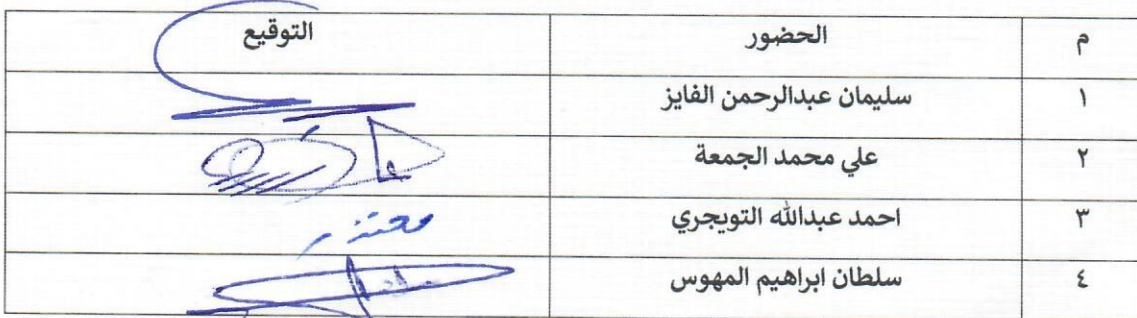 م الحضور التوقيع
١ سليمان عبدالرحمن الفايز
٢ علي محمد الجمعة
٣ احمد عبدالله التويجري معتذر
٤ سلطان ابراهيم المهوس